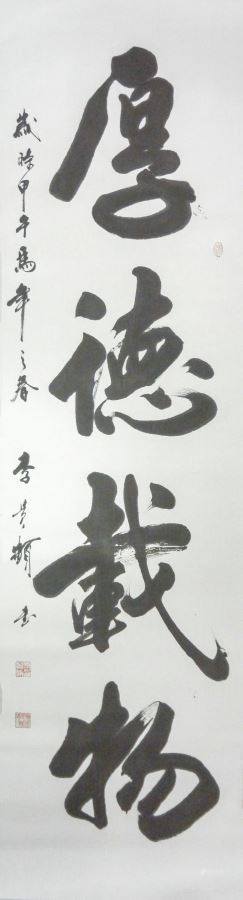 厚德載物
歲略甲午馬年之春 李貴順書